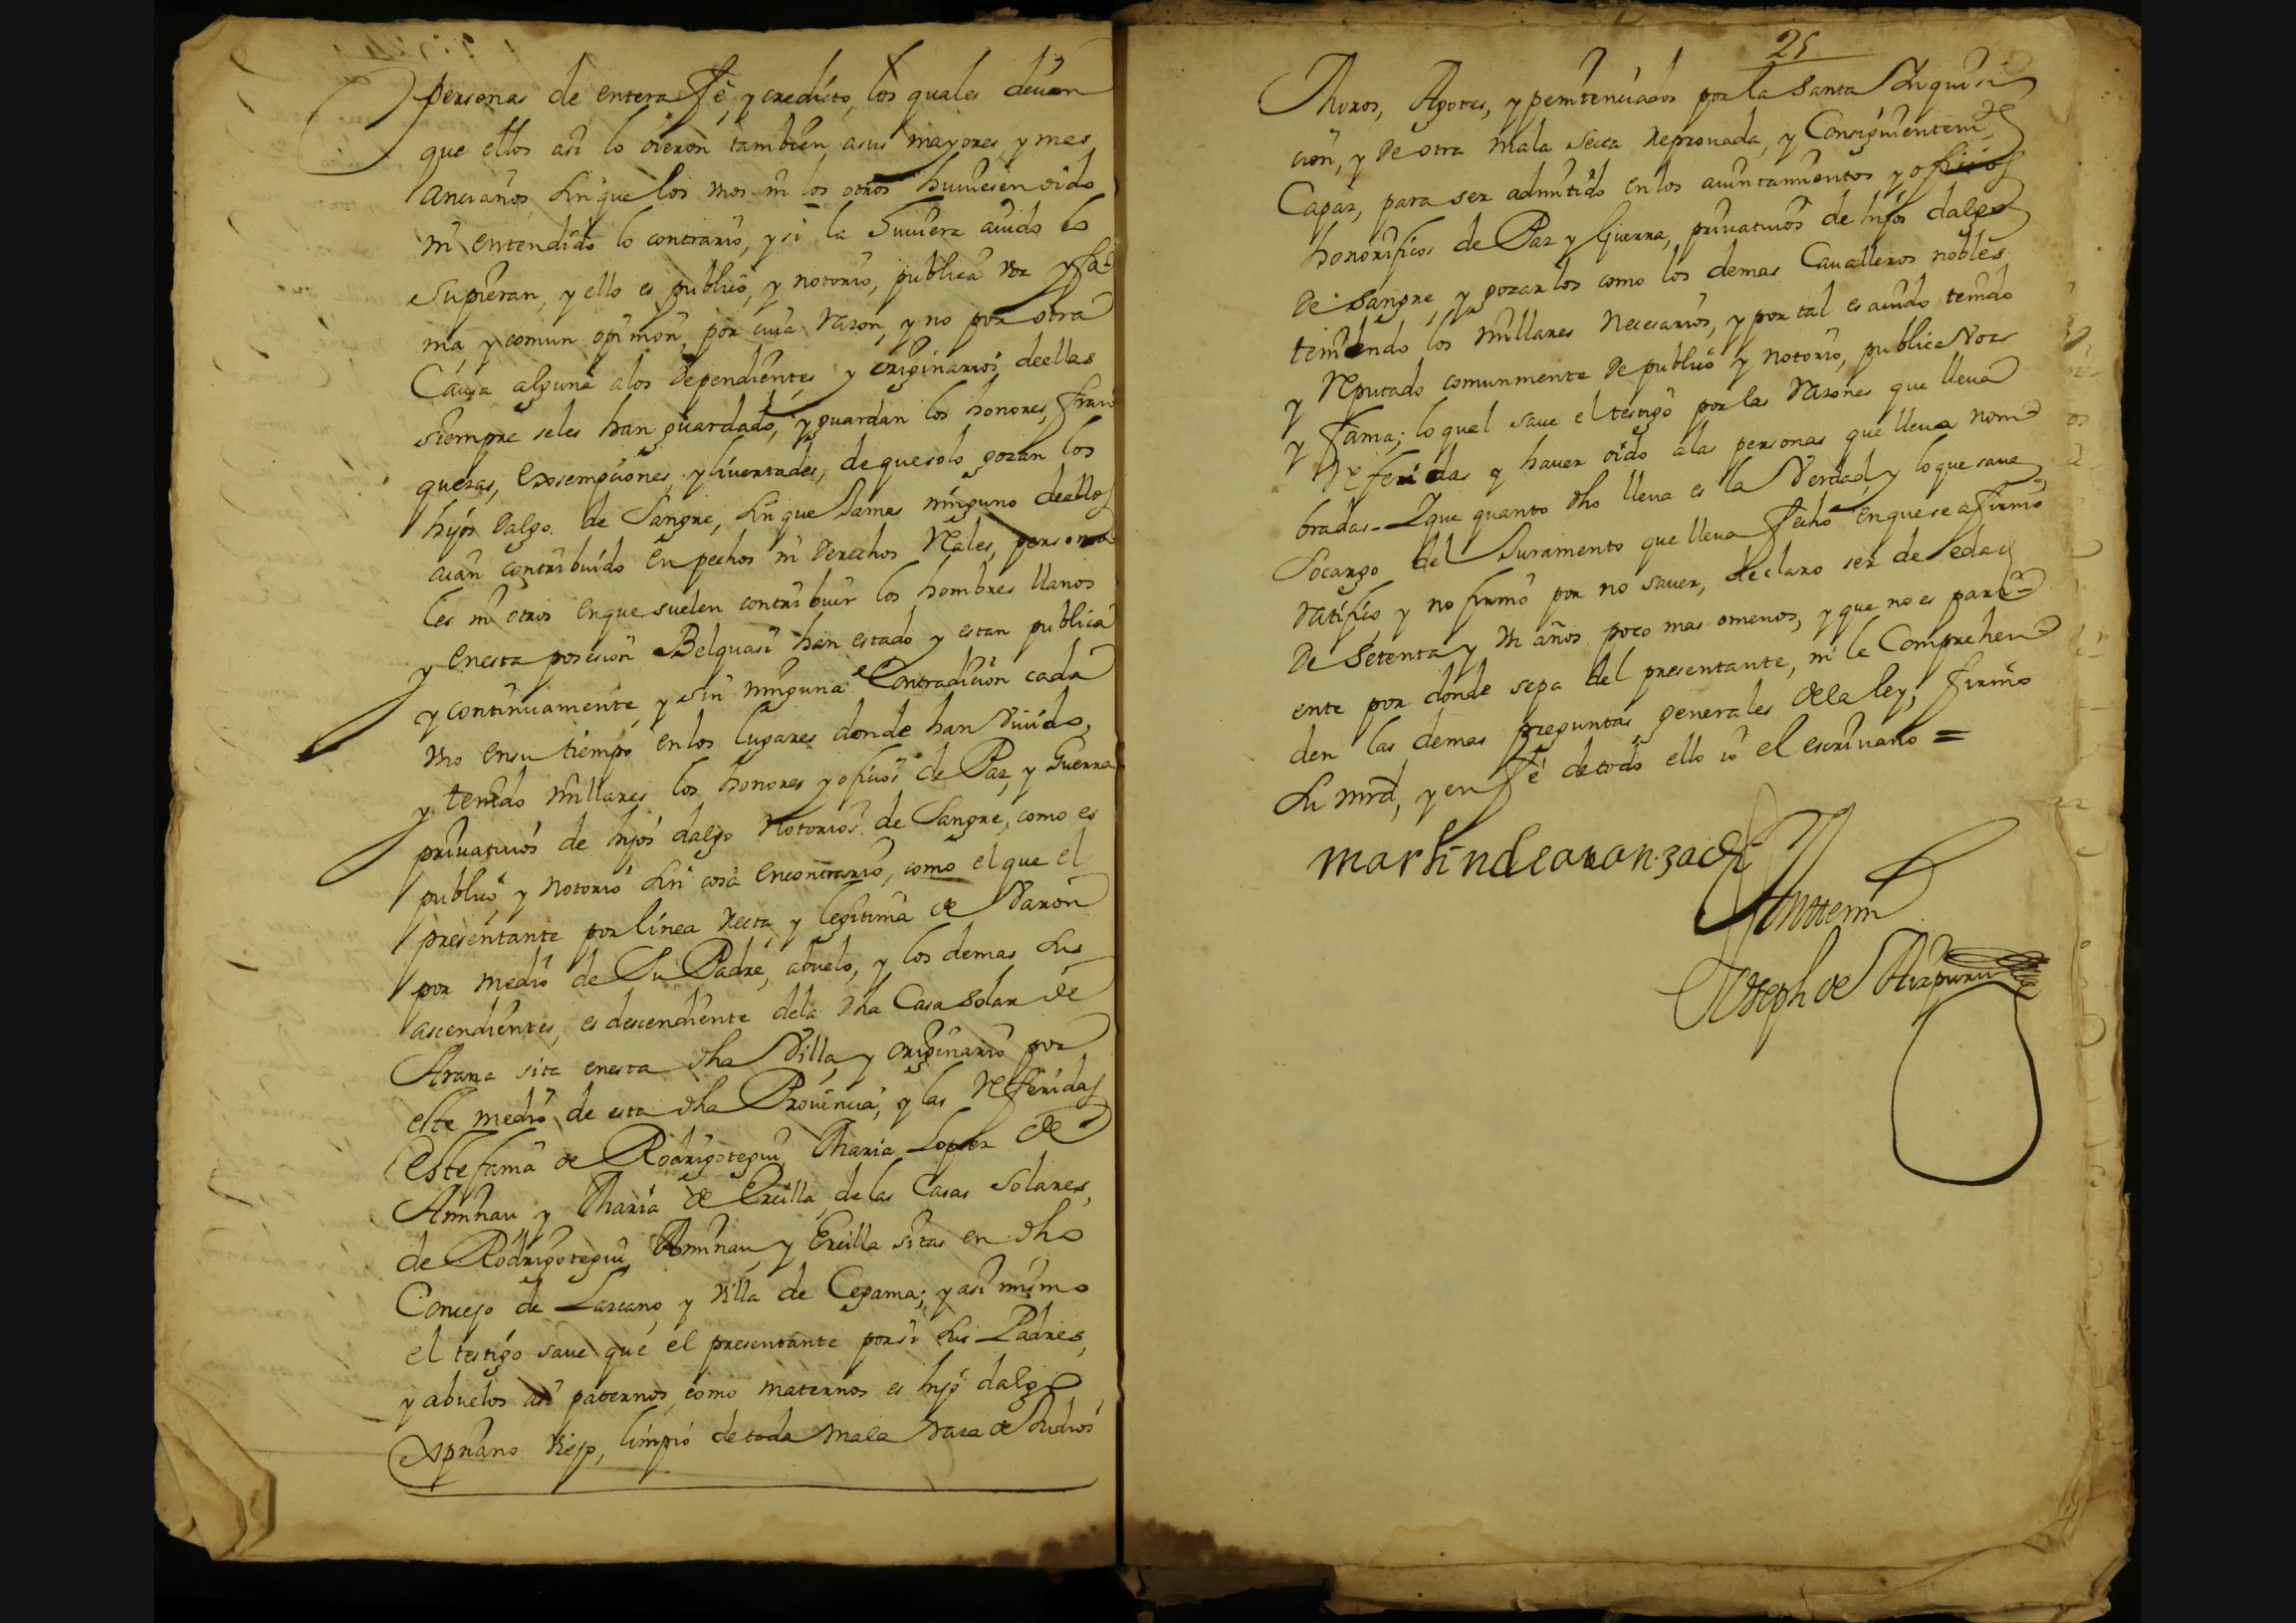 personas de entera fè, y credicto, los quales decian
que ellos asi lo oieron tambien asus mayores, y mas
ancianos, sin que los unos ni los otros huuiesen oido
ni entendido lo contrario, y si la huuiera auido lo
supieran, y ello es publico, y notorio, publica voz y fa-
ma, y comun opinion, por cuia razon, y no por otra
Causa alguna alos dependientes, y originarios deellas
siempre seles han guardado, y guardan los honores, fran
quezas, exsempciones, y liuertades, de que solo gozan los
hijos dalgo de Sangre, sin que Jamas ninguno deellos
aian contribuido en pechos ni derechos Rales, persona
les ni otros en que suelen contribuir los hombres llanos
y enesta posesion Belquasi han estado y estan publica
y continuamente, y sin ninguna Contradicion cada
vno ensu tiempo en los lugares donde han viuido,
y tenido millares, los honores y oficios de Paz, y Guerra
priuatiuos de hijos dalgo Notorios de Sangre, como es
publico, y notorio sin cosa encontrario, como el que el
presentante por linea recta, y legitima de Varon
por medio de Su Padre, abuelo, y los demas sus
ascendientes, es descendiente dela dha Casa solar de
Arana sita enesta dha Villa, y originario por
este medio de esta dha Prouincia, y las Referidas
Estefania de Rodrigotegui, Maria Lopez de
Aminau, y Maria de Ercilla, de las Casas solares,
de Rodrigotegui, Aminau, y Ercilla sitas en dho
Concejo de Lazcano, y villa de Cegama; y asi mismo
el testigo saue que el presentante por si sus Padres,
y abuelos asi paternos, como maternos es hijo dalgo
Xpriano viejo, limpio de toda mala raza de Judios
25
Moros, Agotes, y penitenciados por la santa Inquisi
cion, y de otra mala secta reprouada, y Consiguientemte
Capaz, para ser admitido en los aiuntamientos y oficios
honorificos de Paz y Guerra, priuatiuos de hijos dalgo
de sangre, y gozarlos como los demas Caualleros nobles
teniendo los millares necesarios, y por tal es auido tenido
y Reputado comunmente de publico y notorio, publica voz
y fama; lo qual saue el testigo por las razones que lleua
referidas y hauer oido alas personas que lleua nom
bradas - Y que quanto dho lleua es la Verdad, y lo que saue
Socargo del Juramento que lleua fecho en que se afirmo
ratifico y no firmo por no sauer, declaro ser de edad
de setenta y vn años poco mas omenos, y que no es pari-
ente por donde sepa del presentante, ni le Comprehen
den las demas preguntas generales dela ley, firmo
Su mrd, y en fé de todo ello io el escriuano =
martin de aranzadi
Antemi
Joseph de Aizpuru